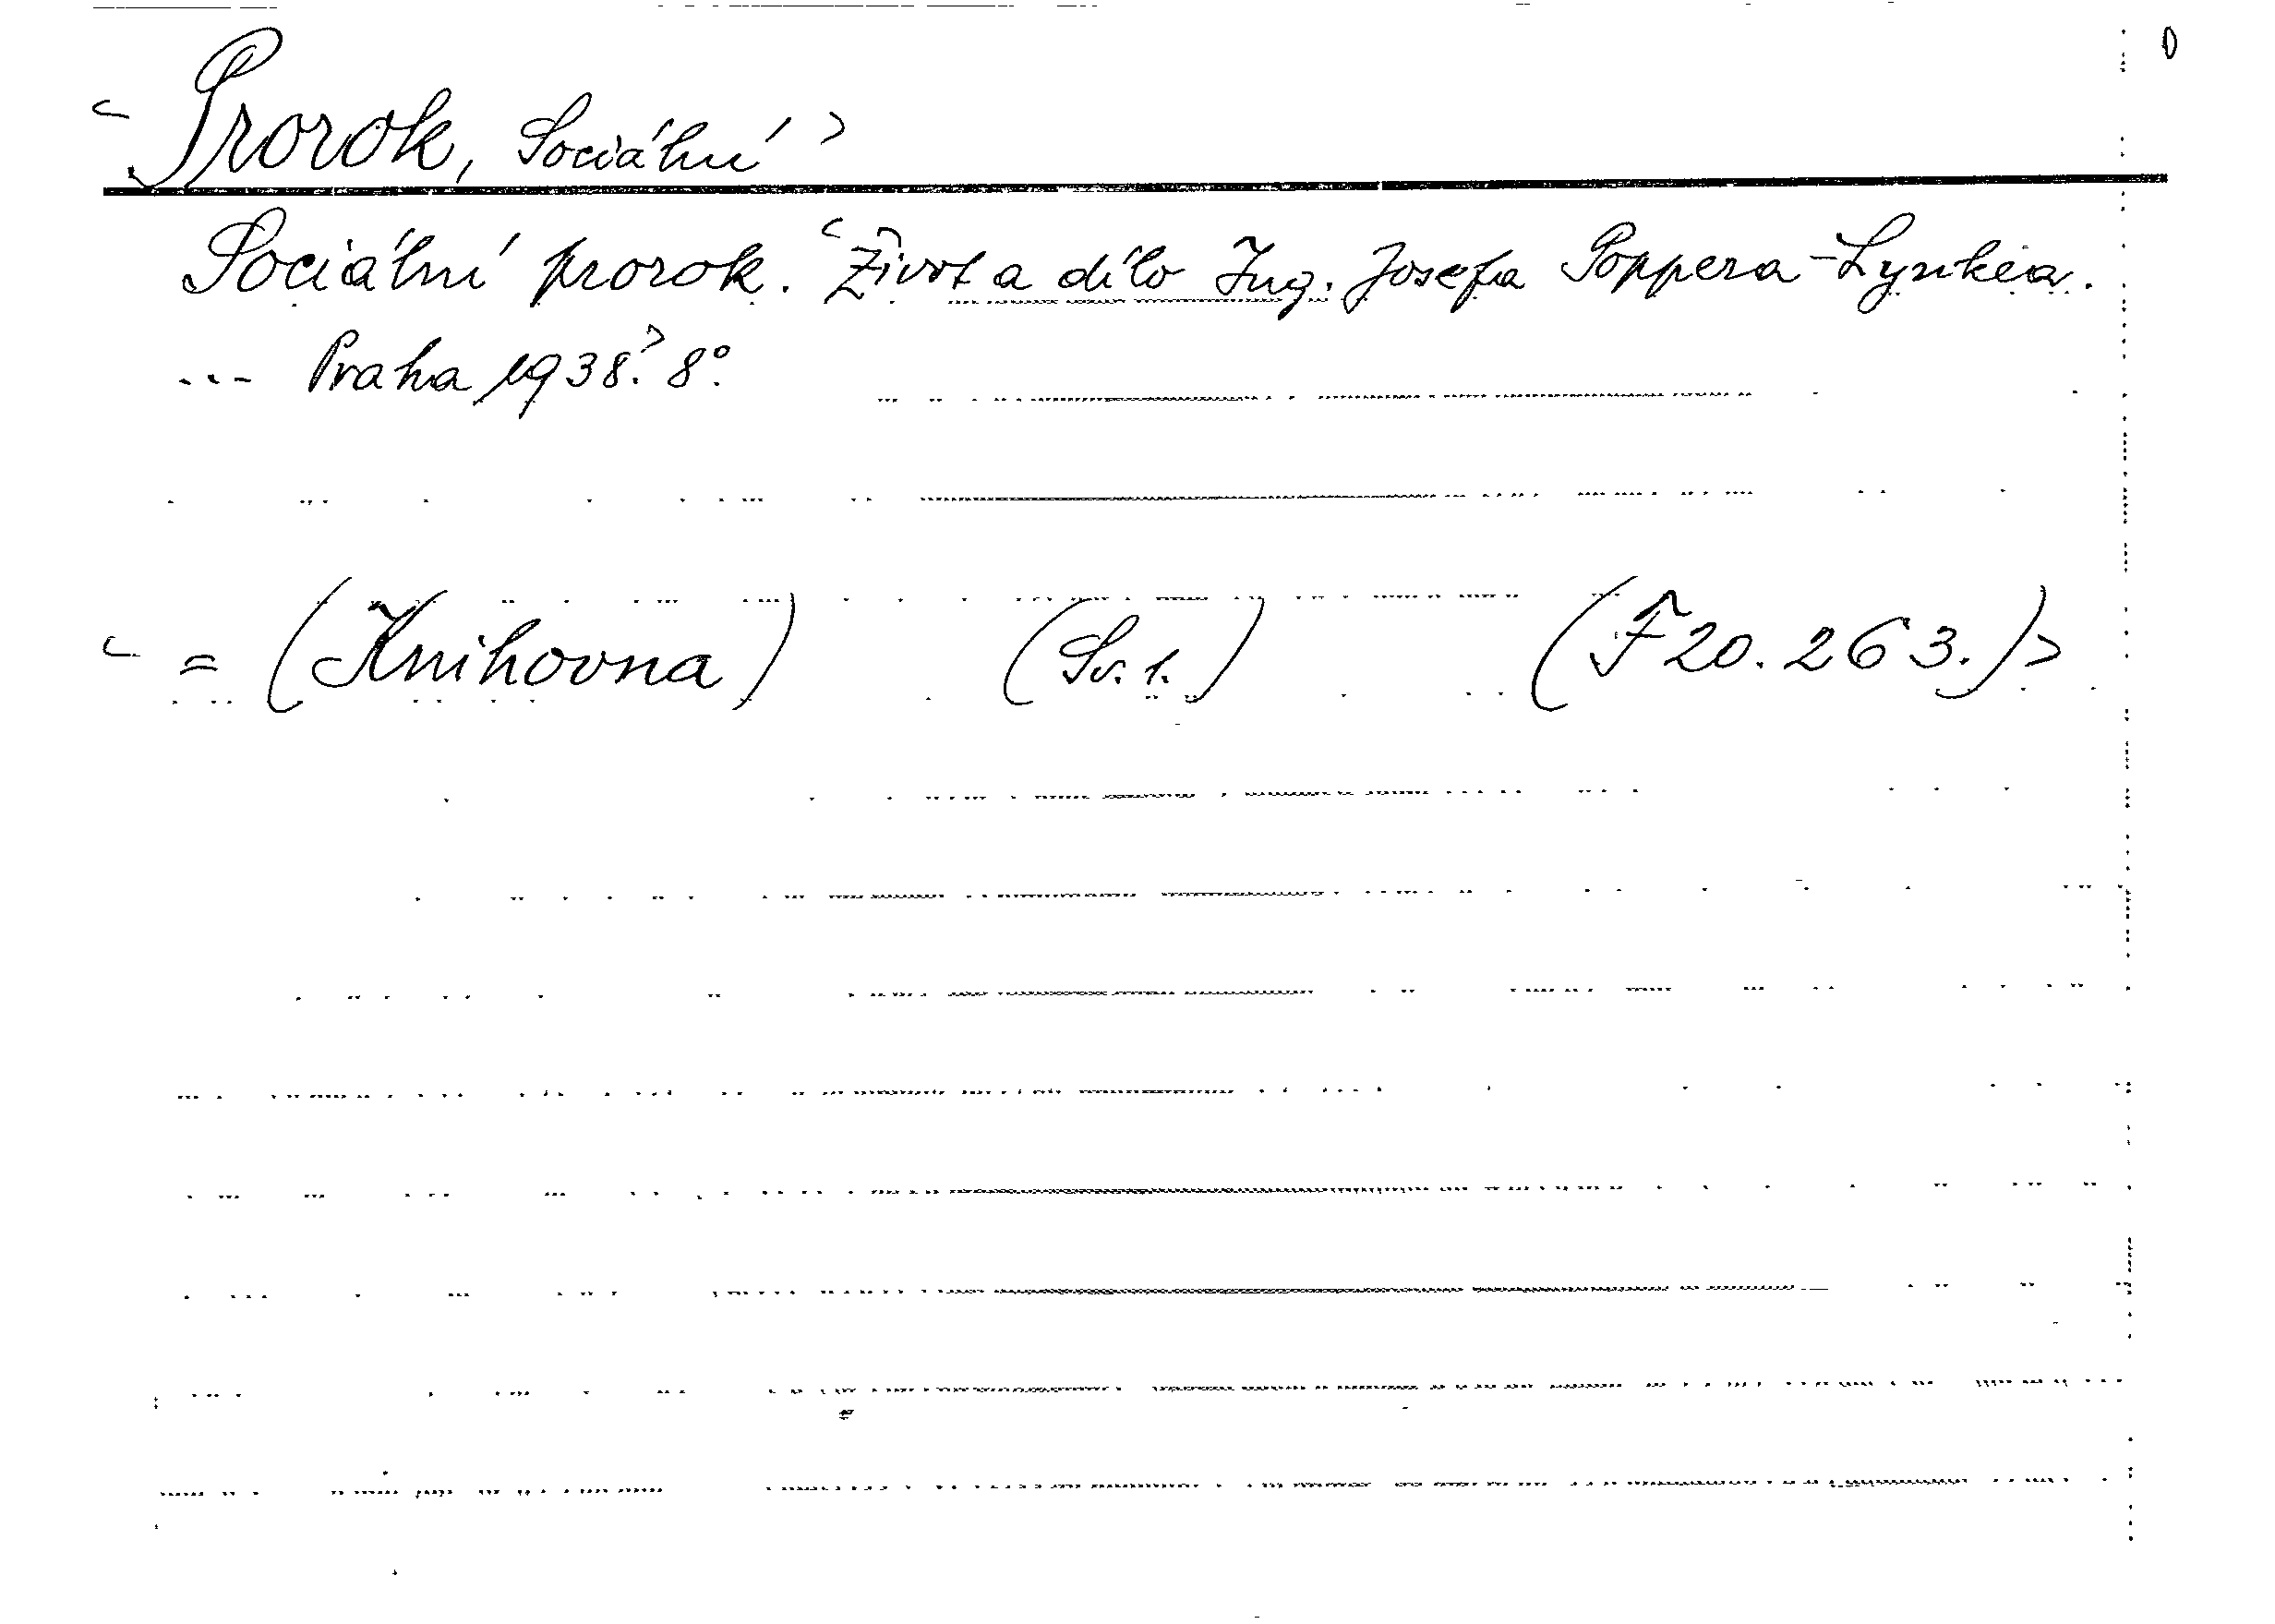 <Prorok, Sociální>
Sociální prorok. <Život a dílo Ing. Josefa Poppera-Lynkea.
--- Praha 1938.> 8°.
< = (Knihovna) (Sv. 1.) (F 20.263.)>